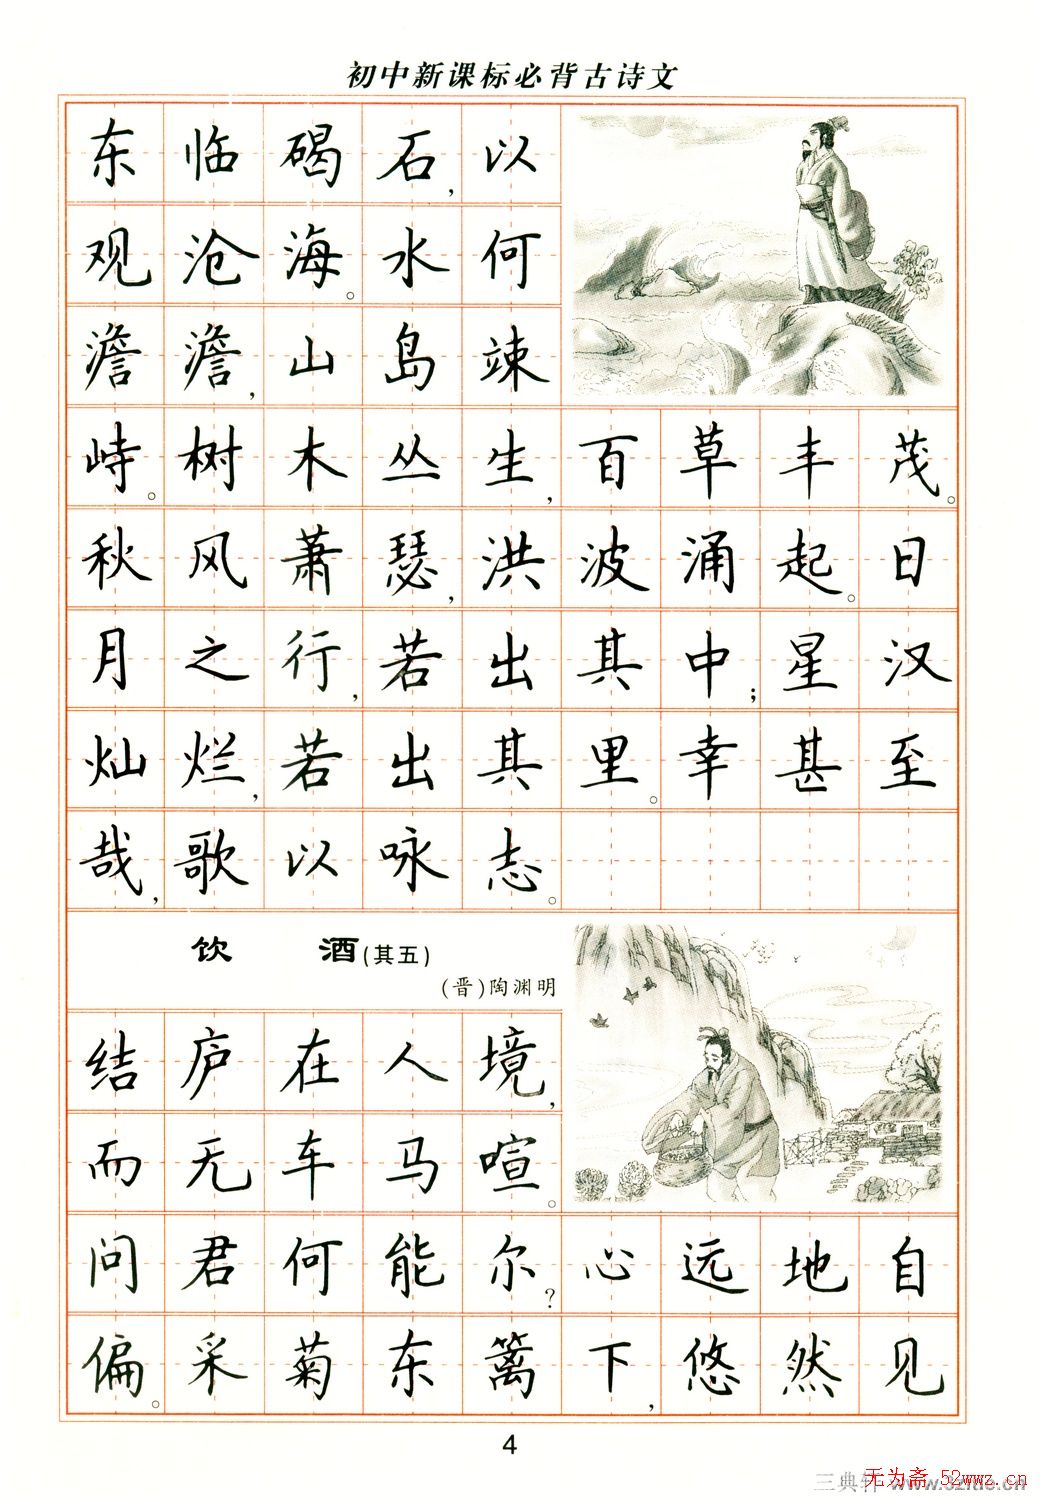 初中新课标必背古诗文
东临碣石,以
观沧海。水何
澹澹,山岛竦
峙。树木丛生,百草丰茂。
秋风萧瑟,洪波涌起。日
月之行,若出其中;星汉
灿烂,若出其里。幸甚至
哉,歌以咏志。
饮 酒(其五)
(晋)陶渊明
结庐在人境,
而无车马喧。
问君何能尔?心远地自
偏。采菊东篱下,悠然见
4
三典轩 www.52ltc.cn
无为斋.52wwz.cn